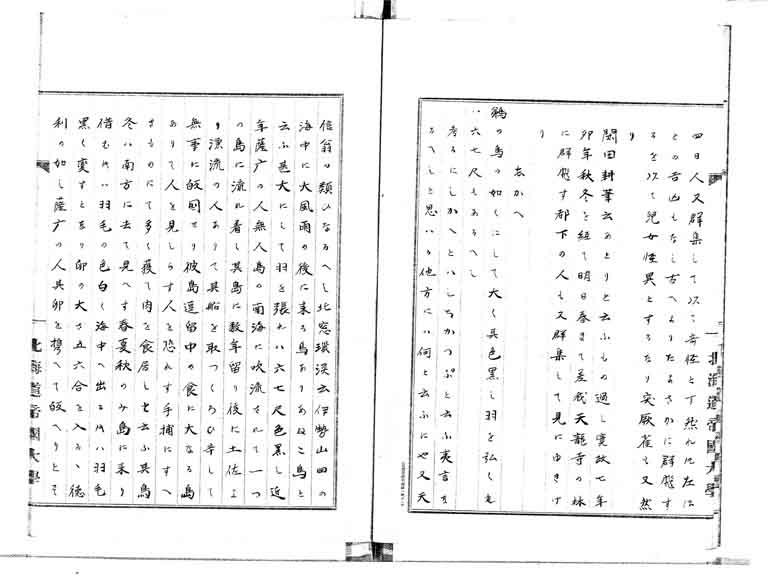 四日人又群集して以て奇怪とす然れ凡左法
との吉凶もなし古へよりたまさかに群飛す
るを以て児女怪異とするたり突厥雀も又然
り
閑田耕筆云あとりと云ふもの過し寛政七年
卯年秋冬を経て明日春まて差峨天龍寺の林
に群飛す都下の人も又群集して見にゆきけ
り
志かへ
鵜の鳥の如くにして大く其色黒し羽を弘くも
八六七尺もあるへし
考るにしかへといしちかつぷと云ふ夷言な
るへしと思いる他方にハ何と云ふにや又天
信翁の類ひなるへし北窓瑣談云伊勢山田の
海中に大風雨の後に来る鳥ありあほこ鳥と
云ふ甚大にして羽を張れハ六七尺色黒し近
年薩广の人無人島の南海に吹流されて一つ
の島に流れ着し其島に数年留り後に土佐よ
り漂流の人ありて其船を取つくろひ幸して
無事に皈国せり彼島逗留中の食に大なる鳥
ありて人を見しらす人を恐れす手捕にすへ
きものにて多く獲て肉を食居しと云ふ其鳥
冬ハ南方に去て見へす春夏秋のみ島に来り
借むれハ羽毛の色白く海中へ出る凡ハ羽毛
黒く変すとあり卵の大さ五六合を入るゝ徳
利の如し薩广の人其卵を携へて皈へりとそ
北海道帝國大學
北海道帝國大學